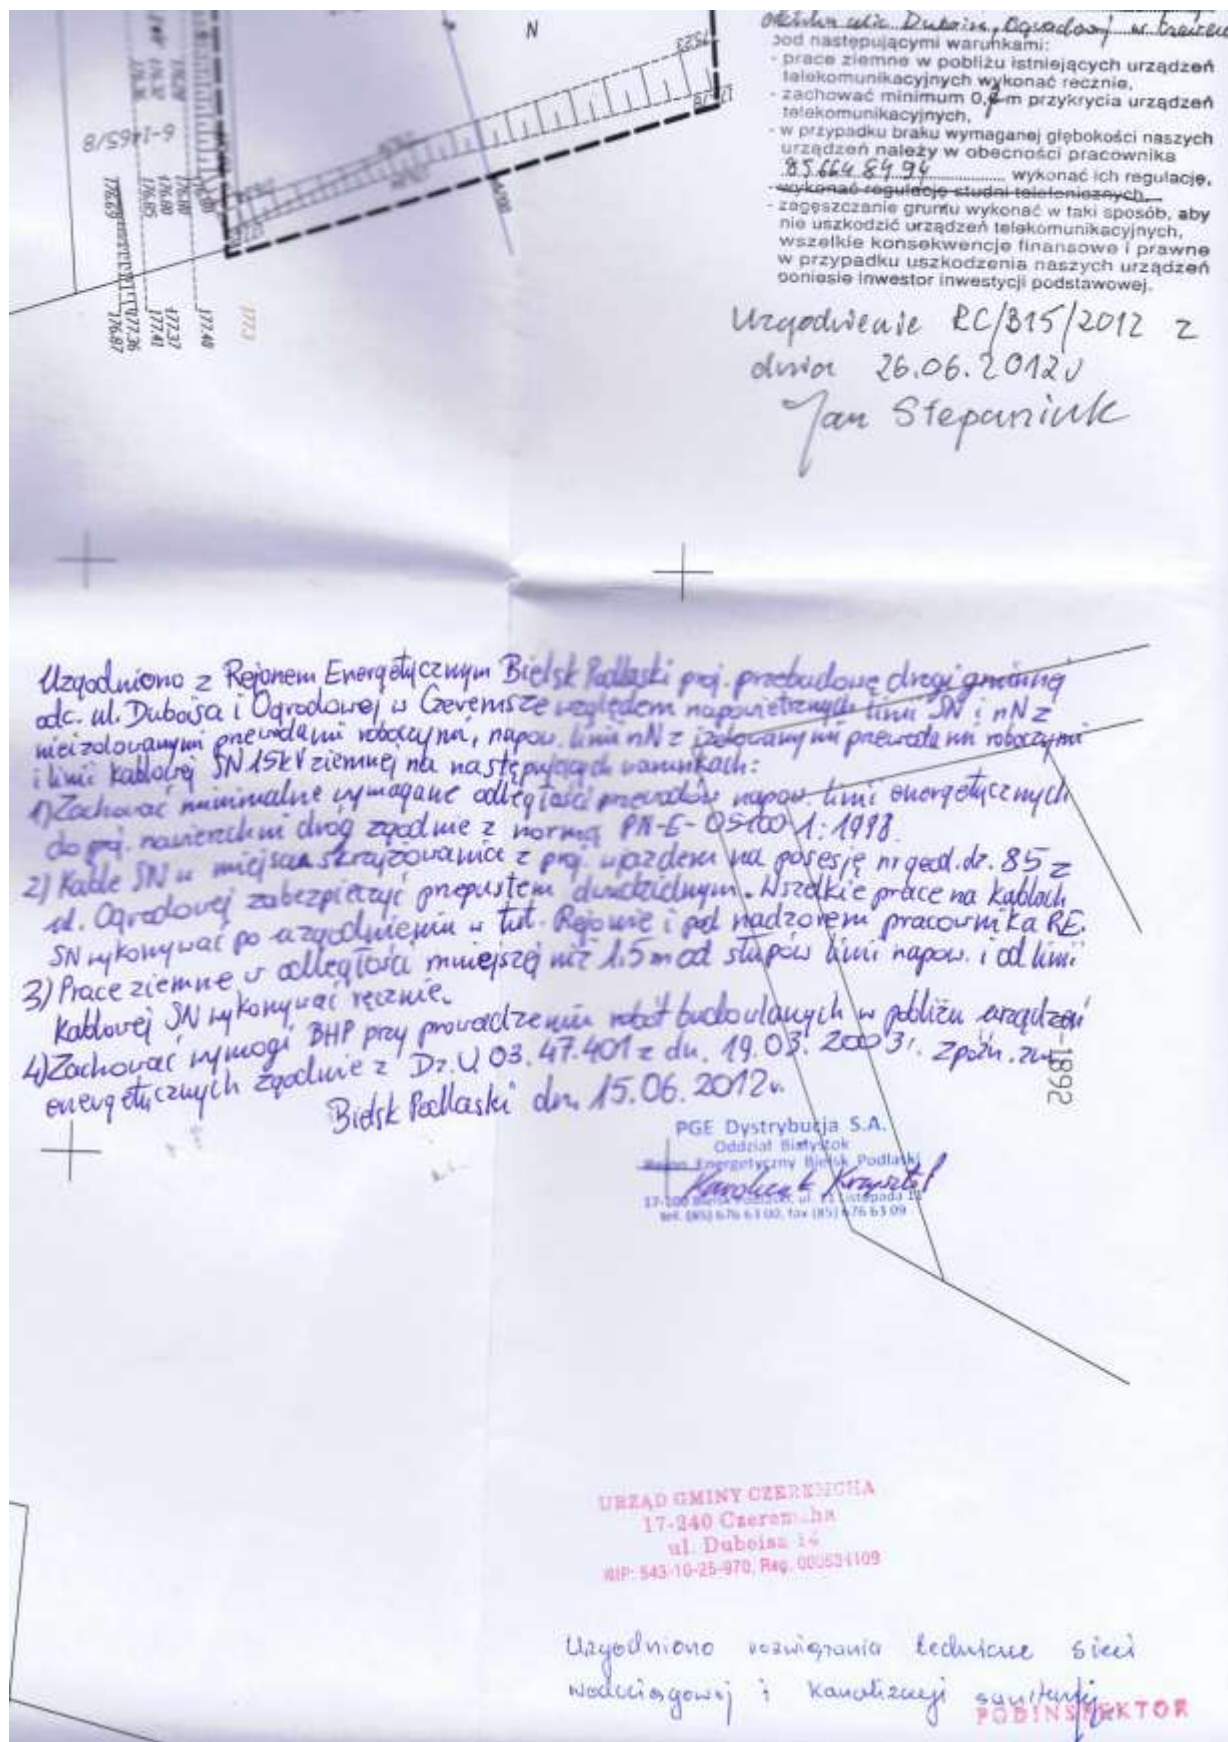 N
7523
6-1465/8
177.3
177.40
177.37
177.41
177.36
176.87
odcinka ulic Dubois, Ogrodowej w
pod następującymi warunkami:
- prace ziemne w pobliżu istniejących urządzeń
telekomunikacyjnych wykonać ręcznie,
- zachować minimum 0, m przykrycia urządzeń
telekomunikacyjnych,
- w przypadku braku wymaganej głębokości naszych
urządzeń należy w obecności pracownika
85 664 84 94 wykonać ich regulację,
- wykonać regulację studni telefonicznych,
- zagęszczanie gruntu wykonać w taki sposób, aby
nie uszkodzić urządzeń telekomunikacyjnych,
wszelkie konsekwencje finansowe i prawne
w przypadku uszkodzenia naszych urządzeń
poniesie inwestor inwestycji podstawowej.
Uzgodnienie RC/315/2012 z
dnia 26.06.2012r
Jan Stepaniuk
Uzgodniono z Rejonem Energetycznym Bielsk Podlaski proj. przebudowę drogi gminnej
odc. ul. Duboisa i Ogrodowej w Czeremsze względem napowietrznych linii SN i nN z
nieizolowanymi przewodami roboczymi, napow. linii nN z izolowanymi przewodami roboczymi
i linii kablowej SN 15kV ziemnej na następujących warunkach:
1) Zachować minimalne wymagane odległości przewodów napow. linii energetycznych
do proj. nawierzchni dróg zgodnie z normą PN-E-05100-1:1998.
2) Kable SN w miejscu skrzyżowania z proj. wjazdem na posesję nr geod. dz. 85 z
ul. Ogrodowej zabezpieczyć przepustem dwudzielnym. Wszelkie prace na kablach
SN wykonywać po uzgodnieniu w tut. Rejonie i pod nadzorem pracownika RE.
3) Prace ziemne w odległości mniejszej niż 1.5m od słupów linii napow. i od linii
kablowej SN wykonywać ręcznie.
4) Zachować wymogi BHP przy prowadzeniu robót budowlanych w pobliżu urządzeń
energetycznych zgodnie z Dz.U 03.47.401 z dn. 19.03.2003r. z późn. zm.
Bielsk Podlaski dn. 15.06.2012r.
-1892
PGE Dystrybucja S.A.
Oddział Białystok
Rejon Energetyczny Bielsk Podlaski
Krzysztof
17-100 Bielsk Podlaski, ul. 11 Listopada 11
tel. (85) 676 63 00, fax (85) 676 63 09
URZĄD GMINY CZEREMCHA
17-240 Czeremcha
ul. Duboisa 14
NIP: 543-10-25-970, Reg. 000534109
Uzgodniono rozwiązania techniczne sieci
wodociągowej i kanalizacji sanitarnej
PODINSPEKTOR